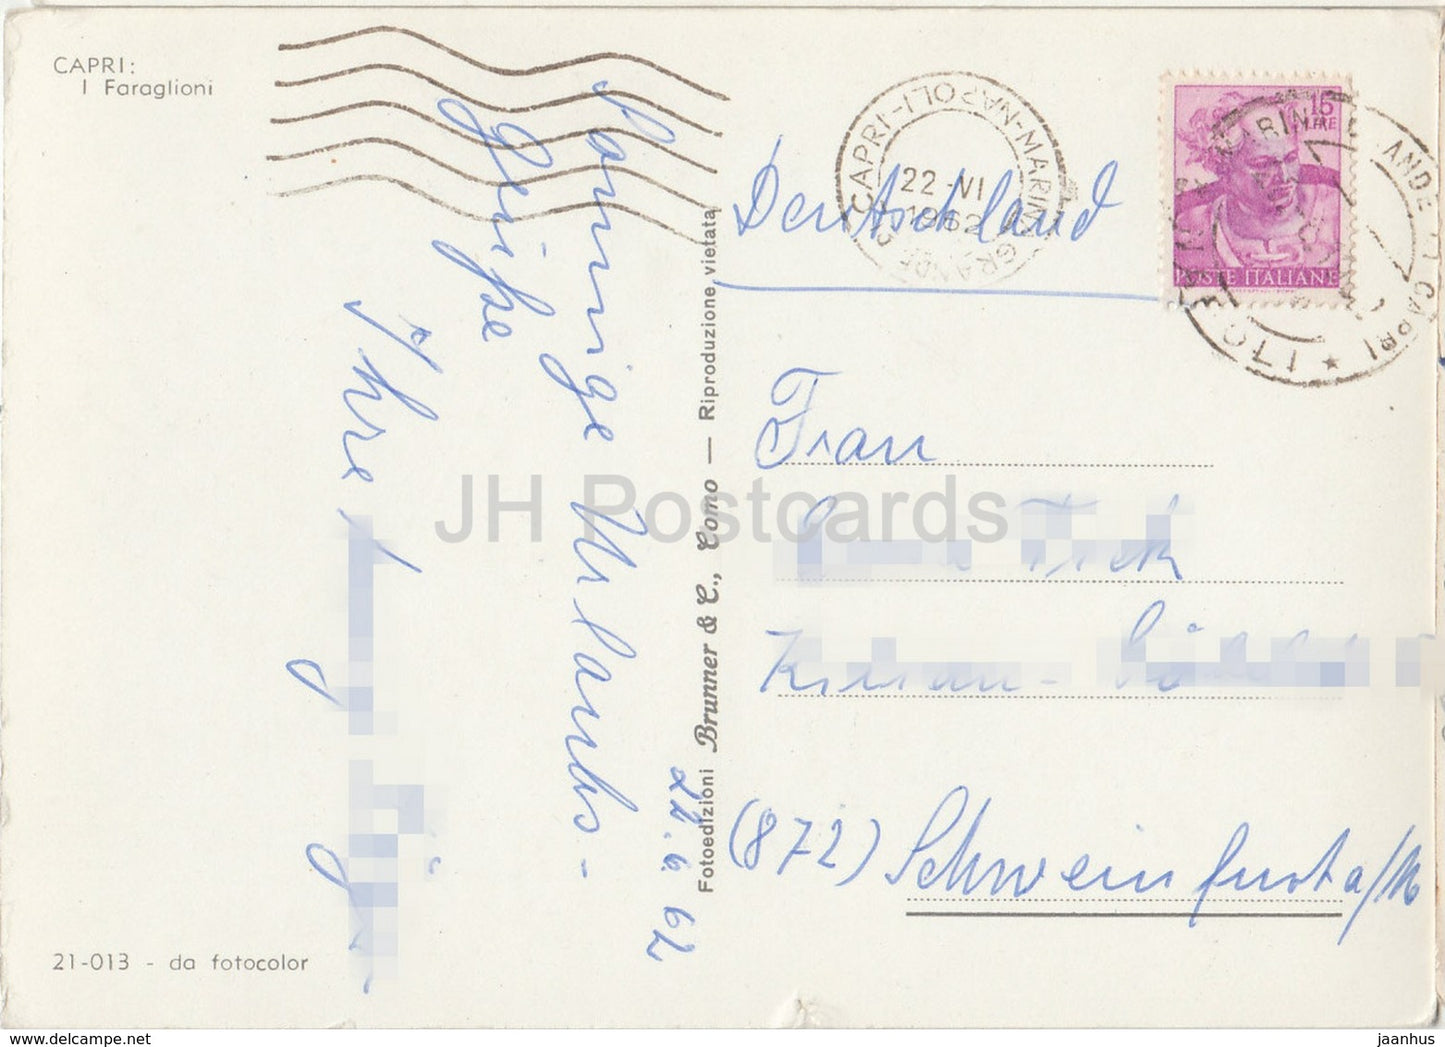 CAPRI:
I Faraglioni
Sonnige Urlaubs-
Grüße
Ihre
22.6.62
Fotoedizioni Brunner & C., Como — Riproduzione vietata
CAPRI-(NAPOLI)-MARINA GRANDE
22-VI
1962
Deutschland
15
LIRE
POSTE ITALIANE
Frau
Fick
Kilian-
(872) Schweinfurt a/M
JH Postcards
21-013 - da fotocolor
www.delcampe.net
jaanhus